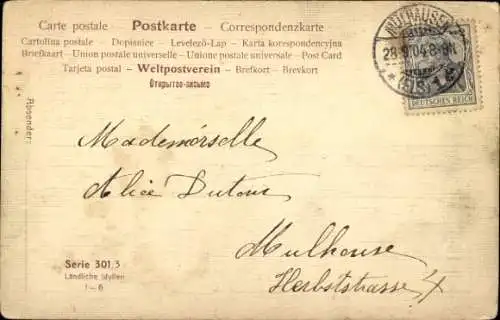 Carte postale – Postkarte – Correspondenzkarte
Cartolina postale – Dopisnice – Levelező-Lap – Karta korespondencyjna
Briefkaart – Union postale universelle – Unione postale universale – Post Card
Tarjeta postal – Weltpostverein – Brefkort – Brevkort
Открытое-письмо
MÜLHAUSEN
(ELS) 1
DEUTSCHES REICH
Absender:
Mademoiselle
Alice Dutour
Mulhouse
Herbststrasse 4
Serie 301/3
Ländliche Idyllen
1–6